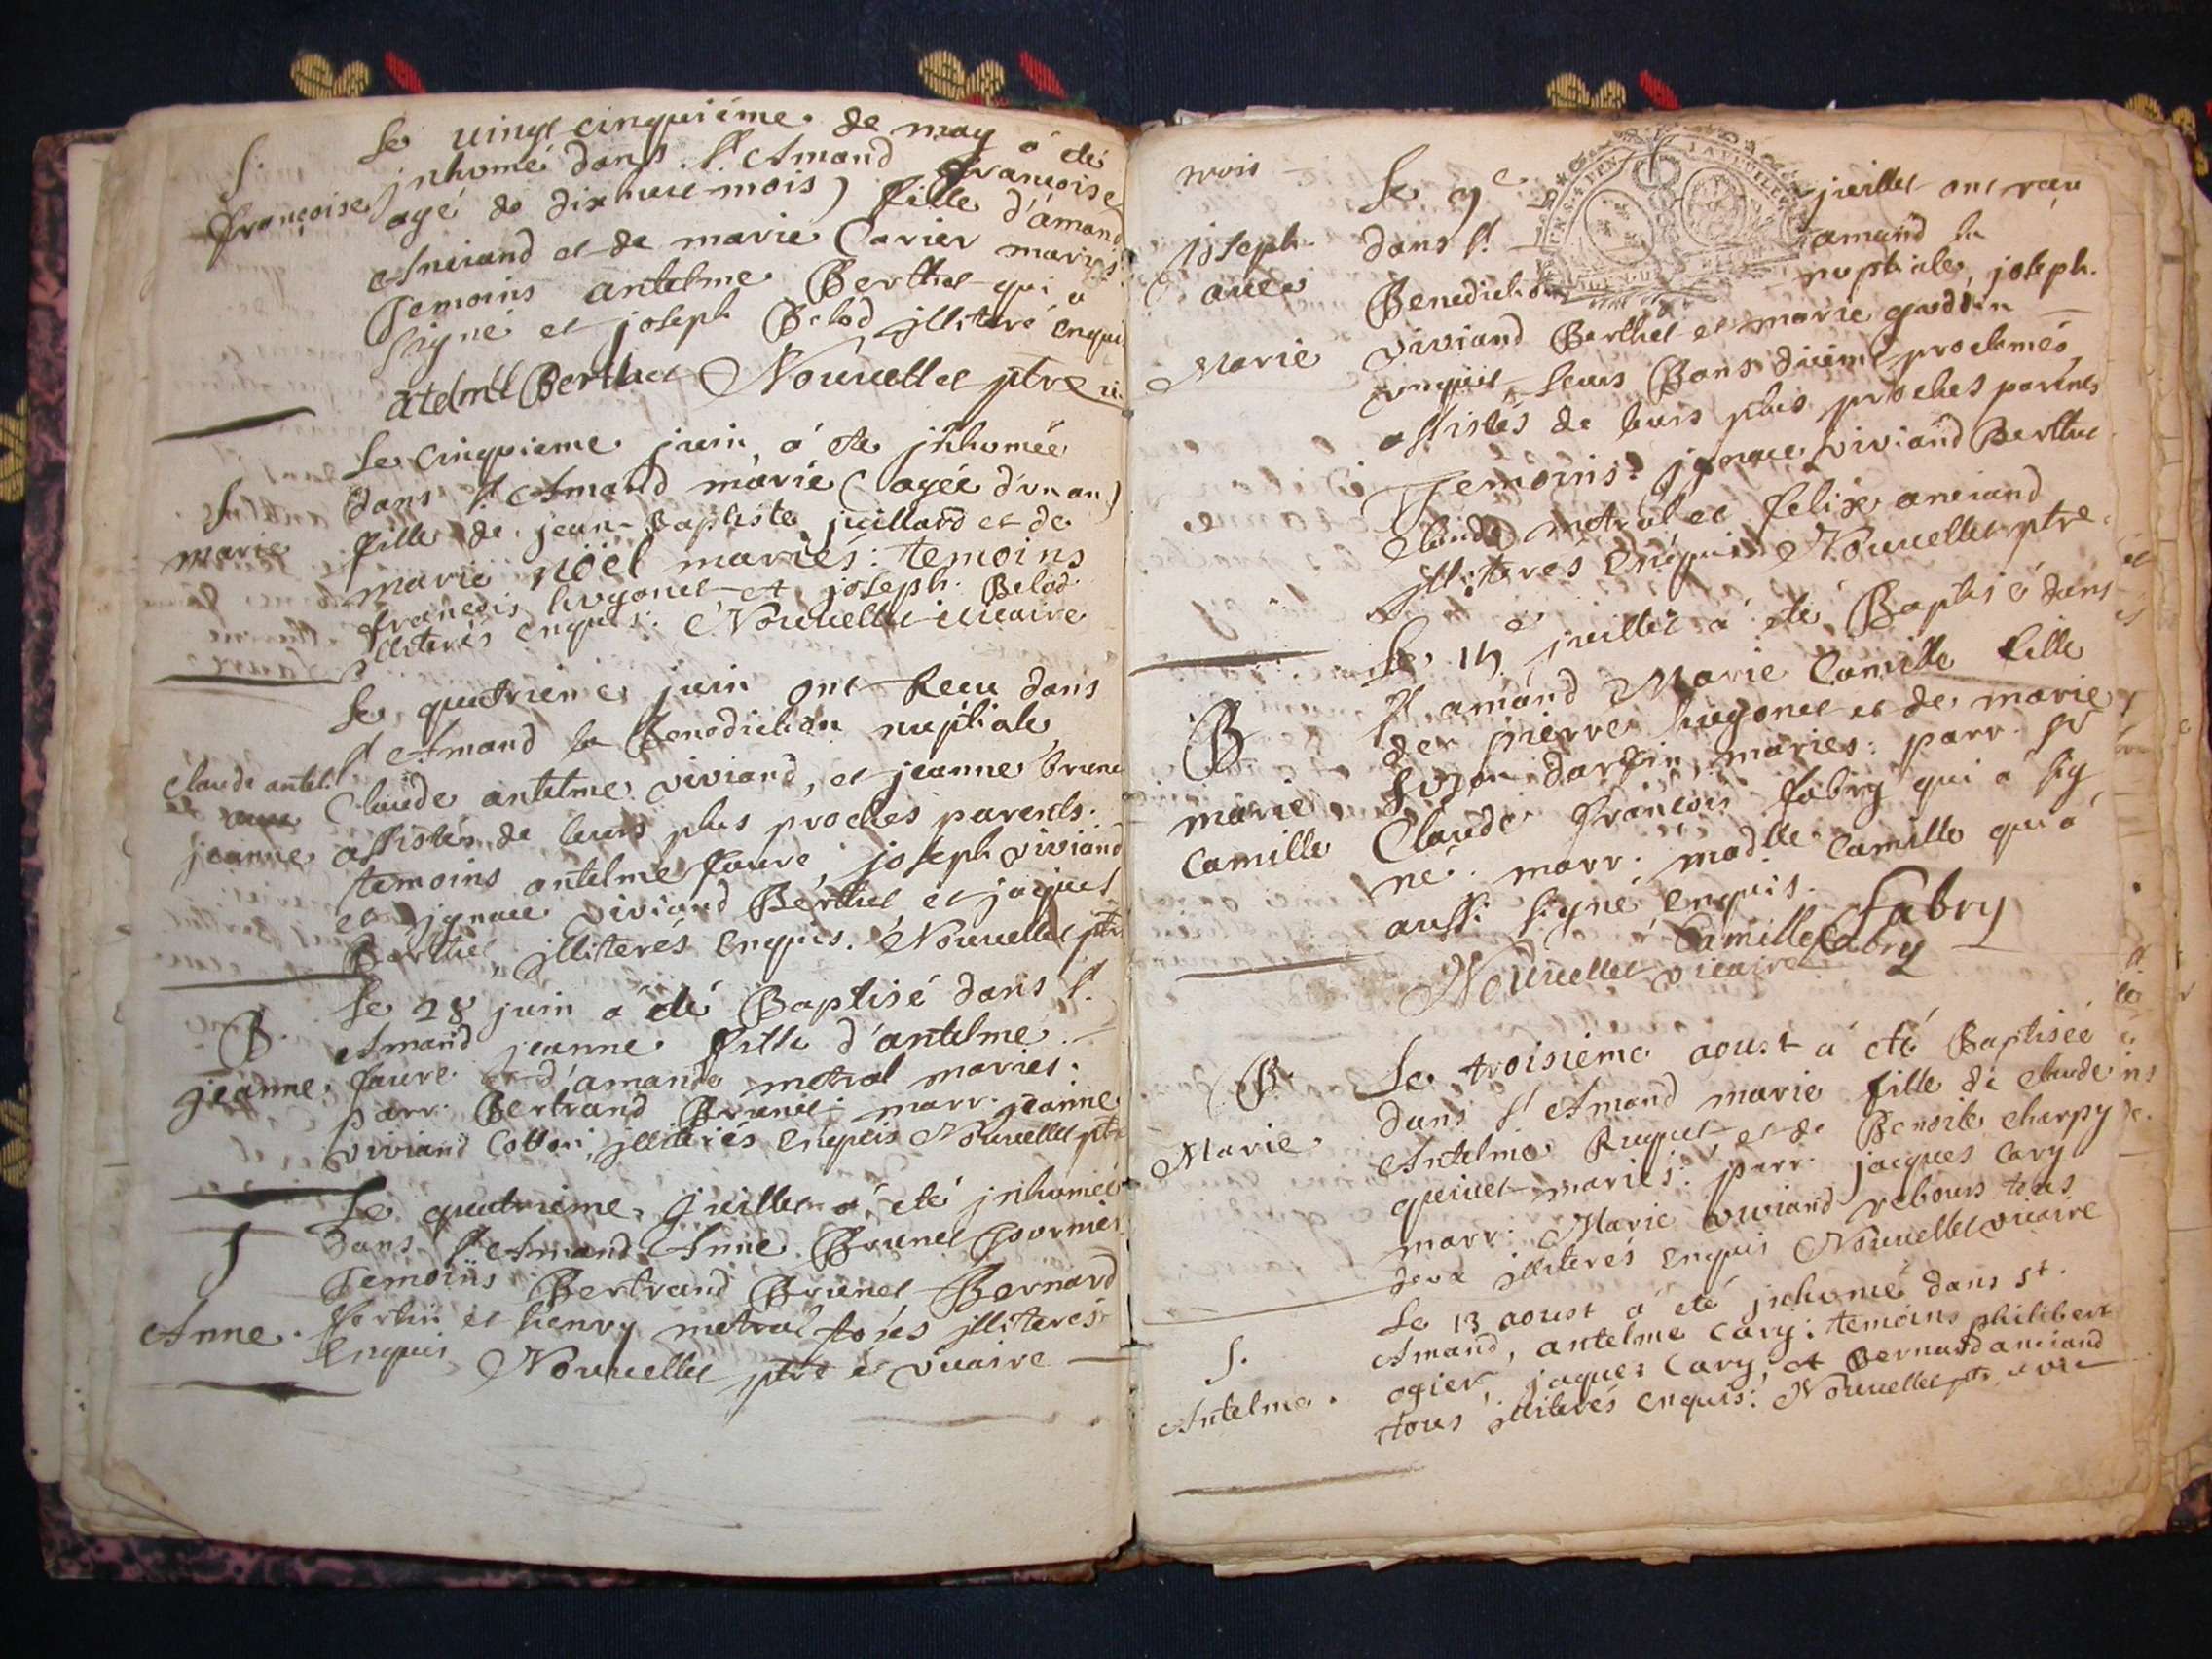 Le vingt cinquiéme de may a eté
S.
inhumé dans St Amand francoise
francoise
agé de dix neuf mois) fille d'amand
Aneiand et de marie Carier mariés
Temoins antelme Berthet qui a
signé et joseph Belod illiteré enquis
âtelme Berthet Nouvellet ptre vi.
Le cinquieme juin a eté inhumée
S
dans St Amand marie (agée d'un an)
marie
fille de jean-Baptiste juillard et de
marie nöel mariés: temoins
francois hugonet et joseph Belod
illiterés enquis. Nouvellet vicaire
Le quatrieme juin ont recu dans
St Amand la Benediction nuptiale
Claude antel.
Claude antelme viviand, et jeanne brunet
et avec
jeanne
assistés de leurs plus proches parents.
temoins antelme faure, joseph viviand
et ignace viviand Berthet et jaques
Berthet, illiterés enquis. Nouvellet ptr
Le 28 juin a eté Baptisé dans St.
B.
Amand jeanne fille d'antelme
jeanne.
faure et d'amande metral mariés.
parr. Bertrand Brunet marr. jeanne
viviand Cotton, illiterés enquis Nouvellet ptr
Le quatrieme juillet a eté inhumée
S
dans St Amand Anne Brunet fournier
Temoins Bertrand Brunet Bernard
Anne.
fertin et henry metral tous illiterés
enquis Nouvellet ptre et vicaire
trois
Le 9e juillet ont recu
joseph
dans St. amand la
avec
Benediction nuptiale, joseph
Marie
viviand Berthet et marie goddin
enquis leurs Bans duëmt proclamés
assistés de leurs plus proches parents
Temoins: ignace viviand Berthet
Claude metral et felix aneiand
illiterés enquis Nouvellet ptre.
Le 14e juillet a eté Baptisé dans
B
St amand Marie Camille fille
de pierre hugonet et de marie
marie
Suzon darpin, mariés: parr. Sr
Camille
Claude francois fabry qui a sig
né. marr. madlle Camille qui a
aussi signé enquis.
Camille fabry
Fabry
Nouvellet vicaire
Le troisieme aoust a eté Baptisée
B.
dans St Amand marie fille de claude
Marie.
Antelme Ruquet et de Benoite charpy
quivet mariés: parr. jacques Cary
marr: Marie viviand rebours tous
deux illiterés enquis Nouvellet vicaire
Le 13 aoust a eté inhumé dans st.
S.
Amand, antelme Cary: temoins philibert
Antelme.
ogier, jaques Cary, et Bernard aneiand
tous illiterés enquis: Nouvellet ptr et vic